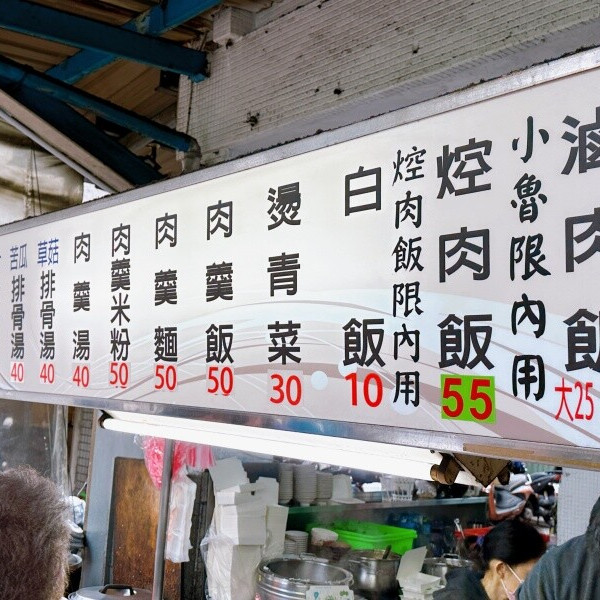 滷肉飯
大25
小魯限內用
焢肉飯
55
焢肉飯限內用
白飯
10
燙青菜
30
肉羹飯
50
肉羹麵
50
肉羹米粉
50
肉羹湯
40
草菇排骨湯
40
苦瓜排骨湯
40